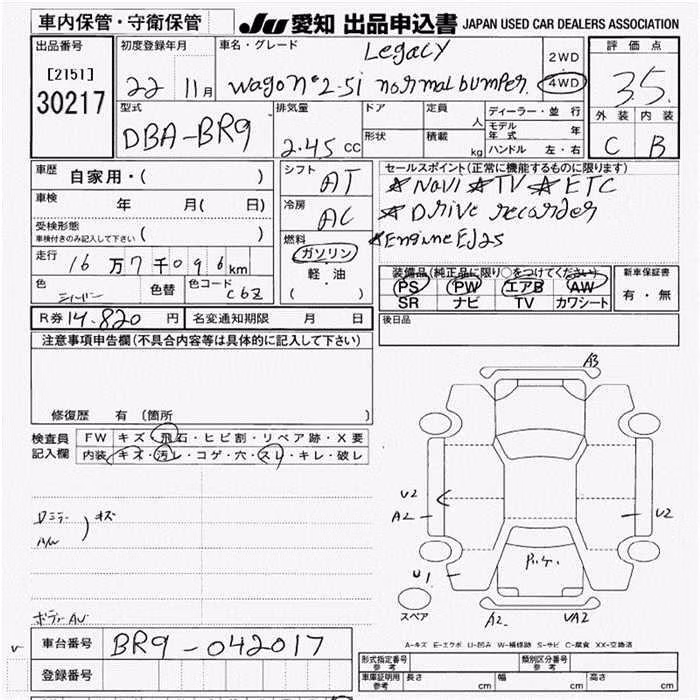 車内保管・守衛保管 JU 愛知 出品申込書 JAPAN USED CAR DEALERS ASSOCIATION
出品番号 初度登録年月 車名・グレード Legacy 2WD 評価点
[2151] 22 11月 Wagon 2.5i normal bumper. 4WD 3.5
30217 型式 排気量 ドア 定員 人 ディーラー・並行 外装 内装
DBA-BR9 2.45 CC 形状 積載 kg モデル年式 年 C B
ハンドル 左・右
車歴 自家用・( ) シフト AT セールスポイント(正常に機能するものに限ります)
☆Navi ☆TV ☆ETC
車検 年 月( 日) 冷房 AC ☆Drive recorder
受検形態 ☆Engine EJ25
車検付きのみ記入して下さい ( ) 燃料
走行 16万7千096km ガソリン 装備品(純正品に限り○をつけてください) 新車保証書
軽・油 PS PW エアB AW 有・無
色 シルバー 色替 色コード C6Z ( ) SR ナビ TV カワシート
R券 14.820 円 名変通知期限 月 日 後日品
注意事項申告欄(不具合内容等は具体的に記入して下さい)
A3
修復歴 有 (箇所 )
検査員 FW キズ・飛石・ヒビ割・リペア跡・X要
記入欄 内装 キズ・汚レ・コゲ・穴・スレ・キレ・破レ
U2
A2 U2
キズ
U1
スペア
A2 UA2
A-キズ E-エクボ U-凹み W-補修跡 S-サビ C-腐食 XX-交換済
車台番号 BR9-042017
登録番号 形式指定番号 参考 類別区分番号 参考
車庫証明用 参考 長さ cm 幅 cm 高さ cm